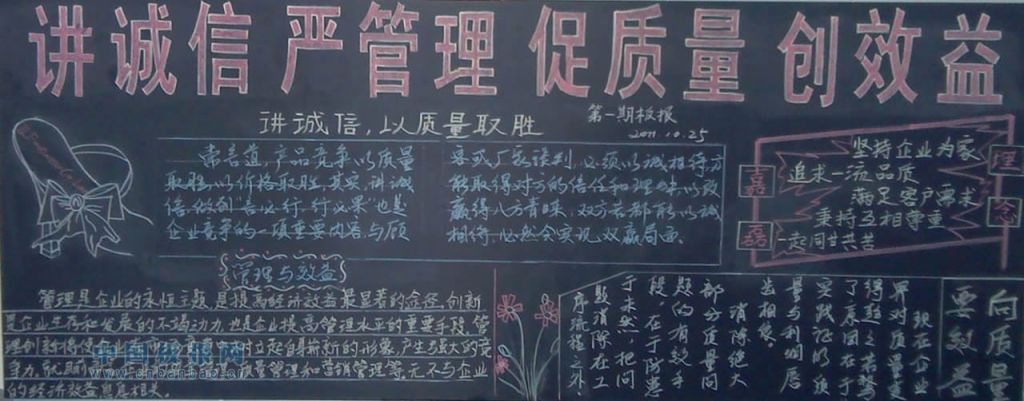 讲诚信 严管理 促质量 创效益
讲诚信,以质量取胜
第一期板报
2011.10.25
常言道,产品竞争以质量
取胜,以价格取胜,其实,讲诚
信,做到言必行,行必果"也是
企业竞争的一项重要内容,与顾
客或厂家谈判,必须以诚相待方
能取得对方的信任和理
赢得八方青睐,双方若都能以诚
相待,必然会实现双赢局面。
嘉
磊
理
念
坚持企业为家
追求一流品质
满足客户需求
秉持互相尊重
一起同甘共苦
管理与效益
管理是企业的永恒主题,是提高经济效益最显著的途径,创新
是企业生存和发展的不竭动力,也是企业提高管理水平的重要手段,管
理创新将使企业
起自身崭新的形象,产生强大的竞
争力,
管理和营销管理等,无不与企业
的经济效益息息相关。
中国板报网
www.cnbanbao.cn
向质量
要效益
现在企业
界对质量
得
了质
实践证明
量与利润
齿相依
消除绝大
部分质量问
题的有效手
段,在于防患
于未然,把问
题消除在工
序流程之外.